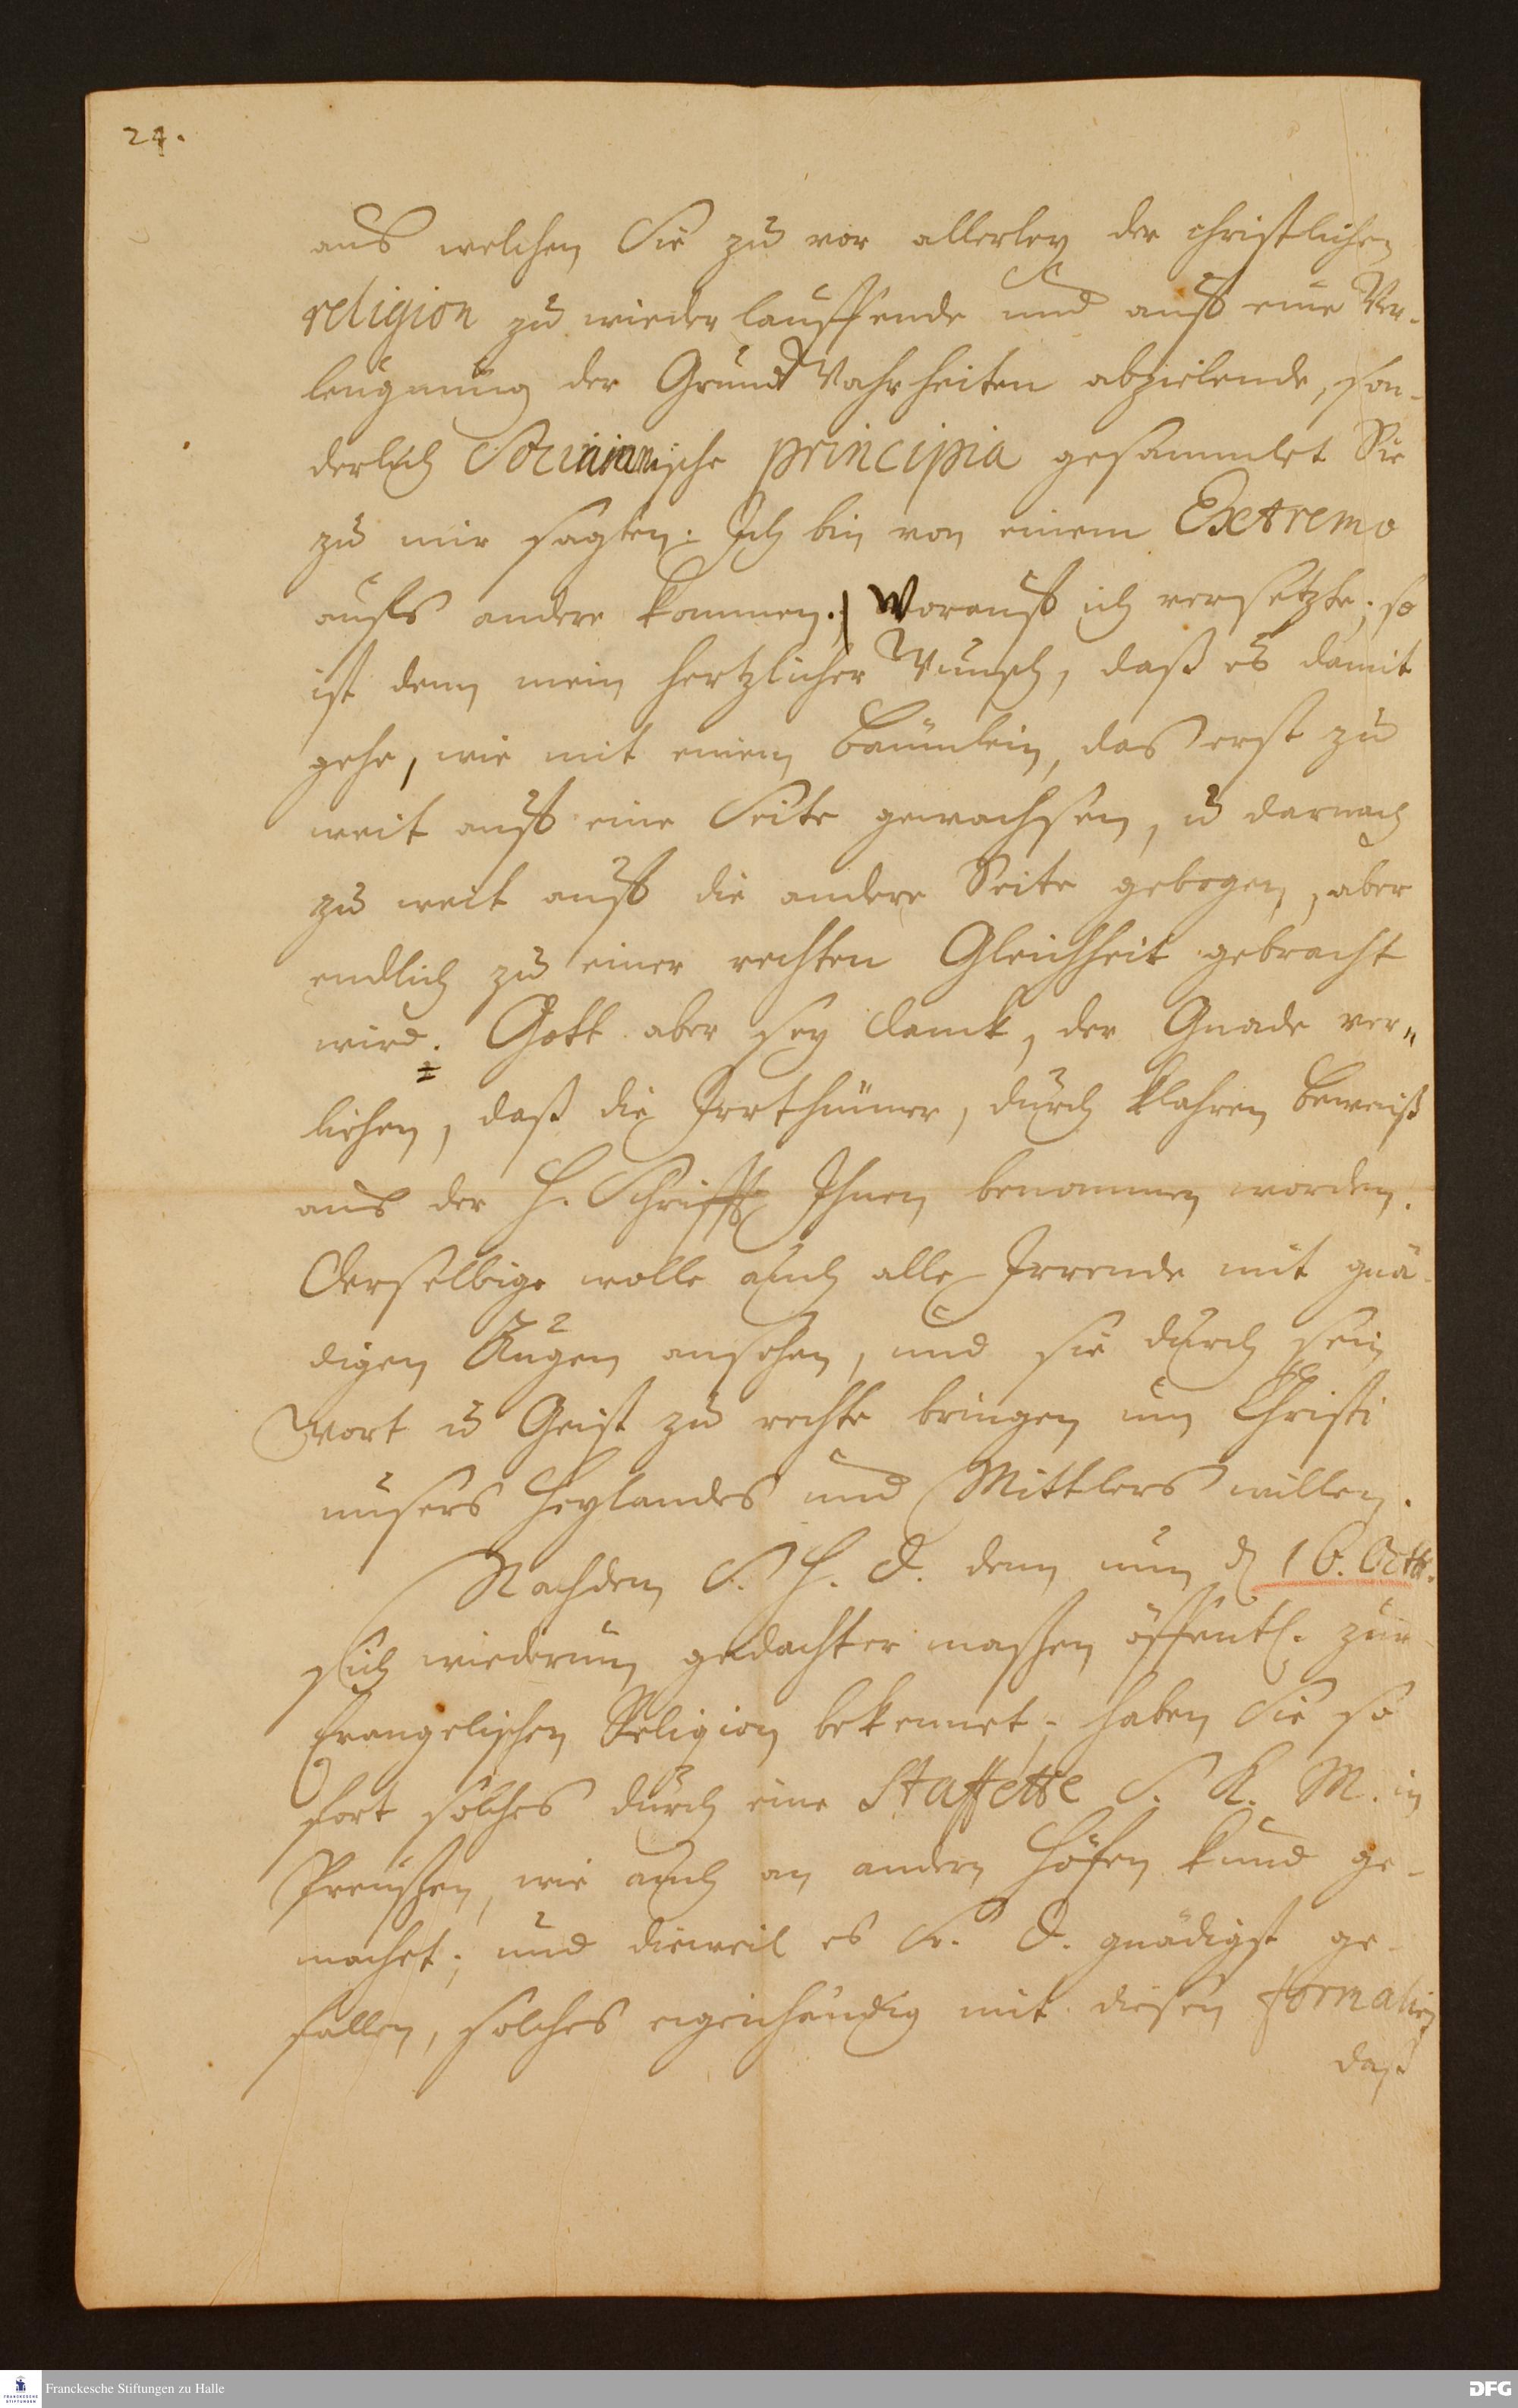 24.
aus welchen Sie zu vor allerley der christlichen
religion zu wieder lauffende und auff eine Ver-
leugnung der Grund Wahrheiten abzielende, son-
derlich Socinianische principia gesammlet Sie
zu mir sagten: Ich bin von einem Extremo
auffs andere kommen. Worauff ich versetzte; so
ist denn mein hertzlicher Wunsch, daß es damit
gehe, wie mit einem Bäumlein, das erst zu
weit auff eine Seite gewachsen, u darnach
zu weit auff die andere Seite gebogen, aber
endlich zu einer rechten Gleichheit gebracht
wird. Gott aber sey danck, der Gnade ver-
liehen, daß die Irrthümer, durch klahren beweiß
aus der H. Schrifft Ihnen benommen worden.
Derselbige wolle auch alle Irrende mit gnä-
digen Augen ansehen, und sie durch sein
Wort u Geist zu rechte bringen um Christi
unsers Heylandes und Mittlers willen.
Nachdem S. H. D. denn nun d 16. Octbr.
sich wiederum gedachter massen öffentl. zur
Evangelischen Religion bekennet; haben Sie so
fort solches durch eine Staffette S. K. M. in
Preussen, wie auch an andern Höfen kund ge-
machet; und dieweil es Sr. D. gnädigst ge-
fallen, solches eigenhändig mit diesen formalien
daß
Franckesche Stiftungen zu Halle
FRANCKESCHE
STIFTUNGEN
DFG